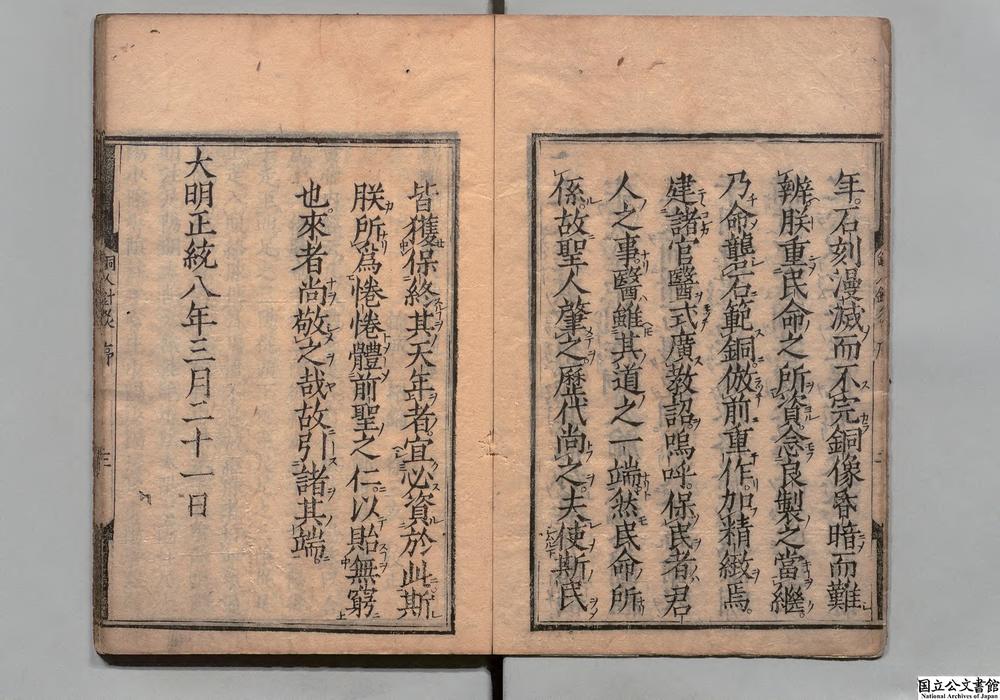 年石刻漫滅而不完銅像昏暗而難
辨朕重民命之所資念良製之當繼
乃命礱石範銅倣前重作加精緻焉
建諸官醫式廣教詔嗚呼保民者君
人之事醫雖其道之一端然民命所
係故聖人肇之歷代尚之夫使斯民
皆獲保終其天年者宜必資於此斯
朕所爲惓惓體前聖之仁以貽無窮
也來者尚敬之哉故引諸其端
大明正統八年三月二十一日
銅人針灸 序 三
国立公文書館
National Archives of Japan